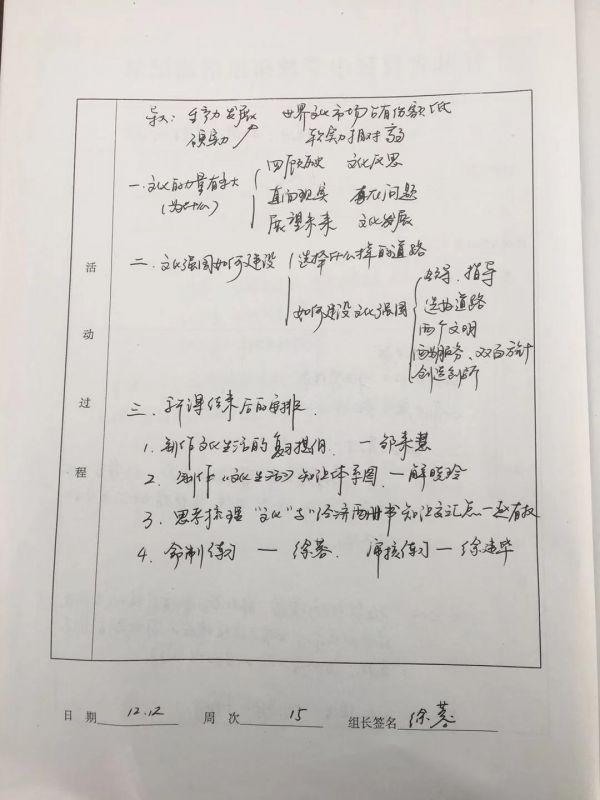 导入: 生产力发展 世界文化市场占有份额低
硬实力 软实力相对弱
一.文化的力量有多大
(为什么)
回顾历史 文化反思
直面现实 存在问题
展望未来 文化发展
二.文化强国如何建设
选择什么样的道路
如何建设文化强国
领导、指导
选好道路
两个文明
两为服务、双百方针
创造创新
三.新课结束后的安排.
1.制作文化生活的复习提纲. —邹来慧
2.制作《文化生活》知识体系图.—解晓玲
3.思考梳理"文化"与"经济两册书知识交汇点—赵有权
4.命制练习 — 徐蓉. 审核练习—徐建华
活动过程
日 期 12.12 周 次 15 组长签名 徐蓉